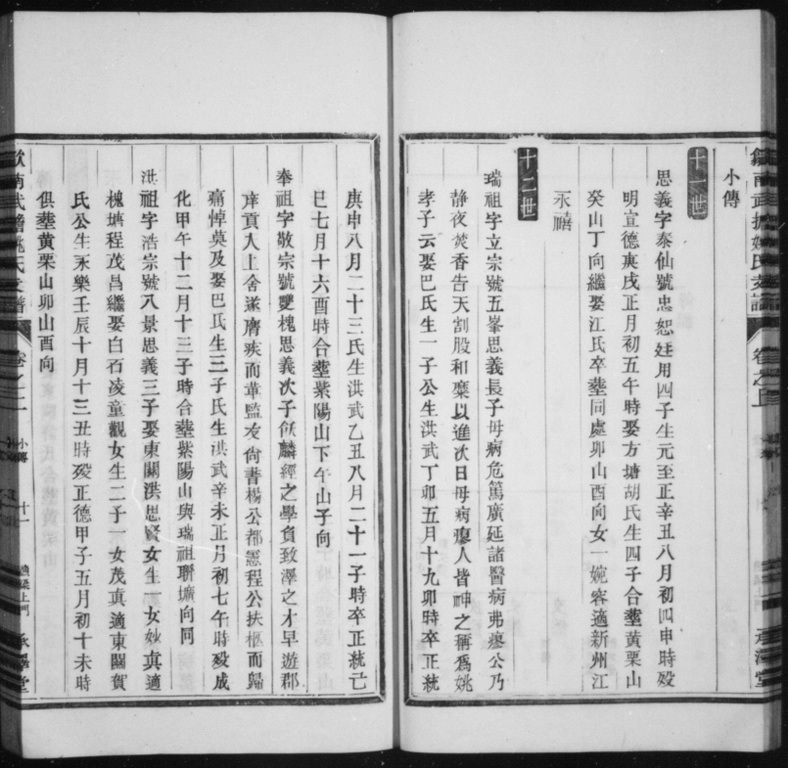 小傳
十一世
思義字泰仙號忠恕廷用四子生元至正辛丑八月初四申時殁
明宣德庚戌正月初五午時娶方塘胡氏生四子合塟黃栗山
癸山丁向繼娶江氏卒塟同處卯山酉向女一婉容適新州江
永禧
十二世
瑞祖字立宗號五峯思義長子母病危篤廣延諸醫病弗瘳公乃
靜夜焚香告天割股和糜以進次日母病瘳人皆神之稱爲姚
孝子云娶巴氏生一子公生洪武丁卯五月十九卯時卒正統
庚申八月二十三氏生洪武乙丑八月二十一子時卒正統己
巳七月十六酉時合塟紫陽山下午山子向
奉祖字敬宗號雙槐思義次子飫麟經之學負致澤之才早遊郡
庠貢入上舍遂膺疾而革監友尙書楊公都憲程公扶柩而歸
痛悼莫及娶巴氏生三子氏生洪武辛未正月初七午時殁成
化甲午十二月十三子時合塟紫陽山與瑞祖聯壙向同
洪祖字浩宗號八景思義三子娶東關洪思賢女生一女妙真適
槐塘程茂昌繼娶白石凌童觀女生二子一女茂真適東關賀
氏公生永樂壬辰十月十三丑時殁正德甲子五月初十未時
俱塟黃栗山卯山酉向
卷之二
小傳
十一
承澤堂